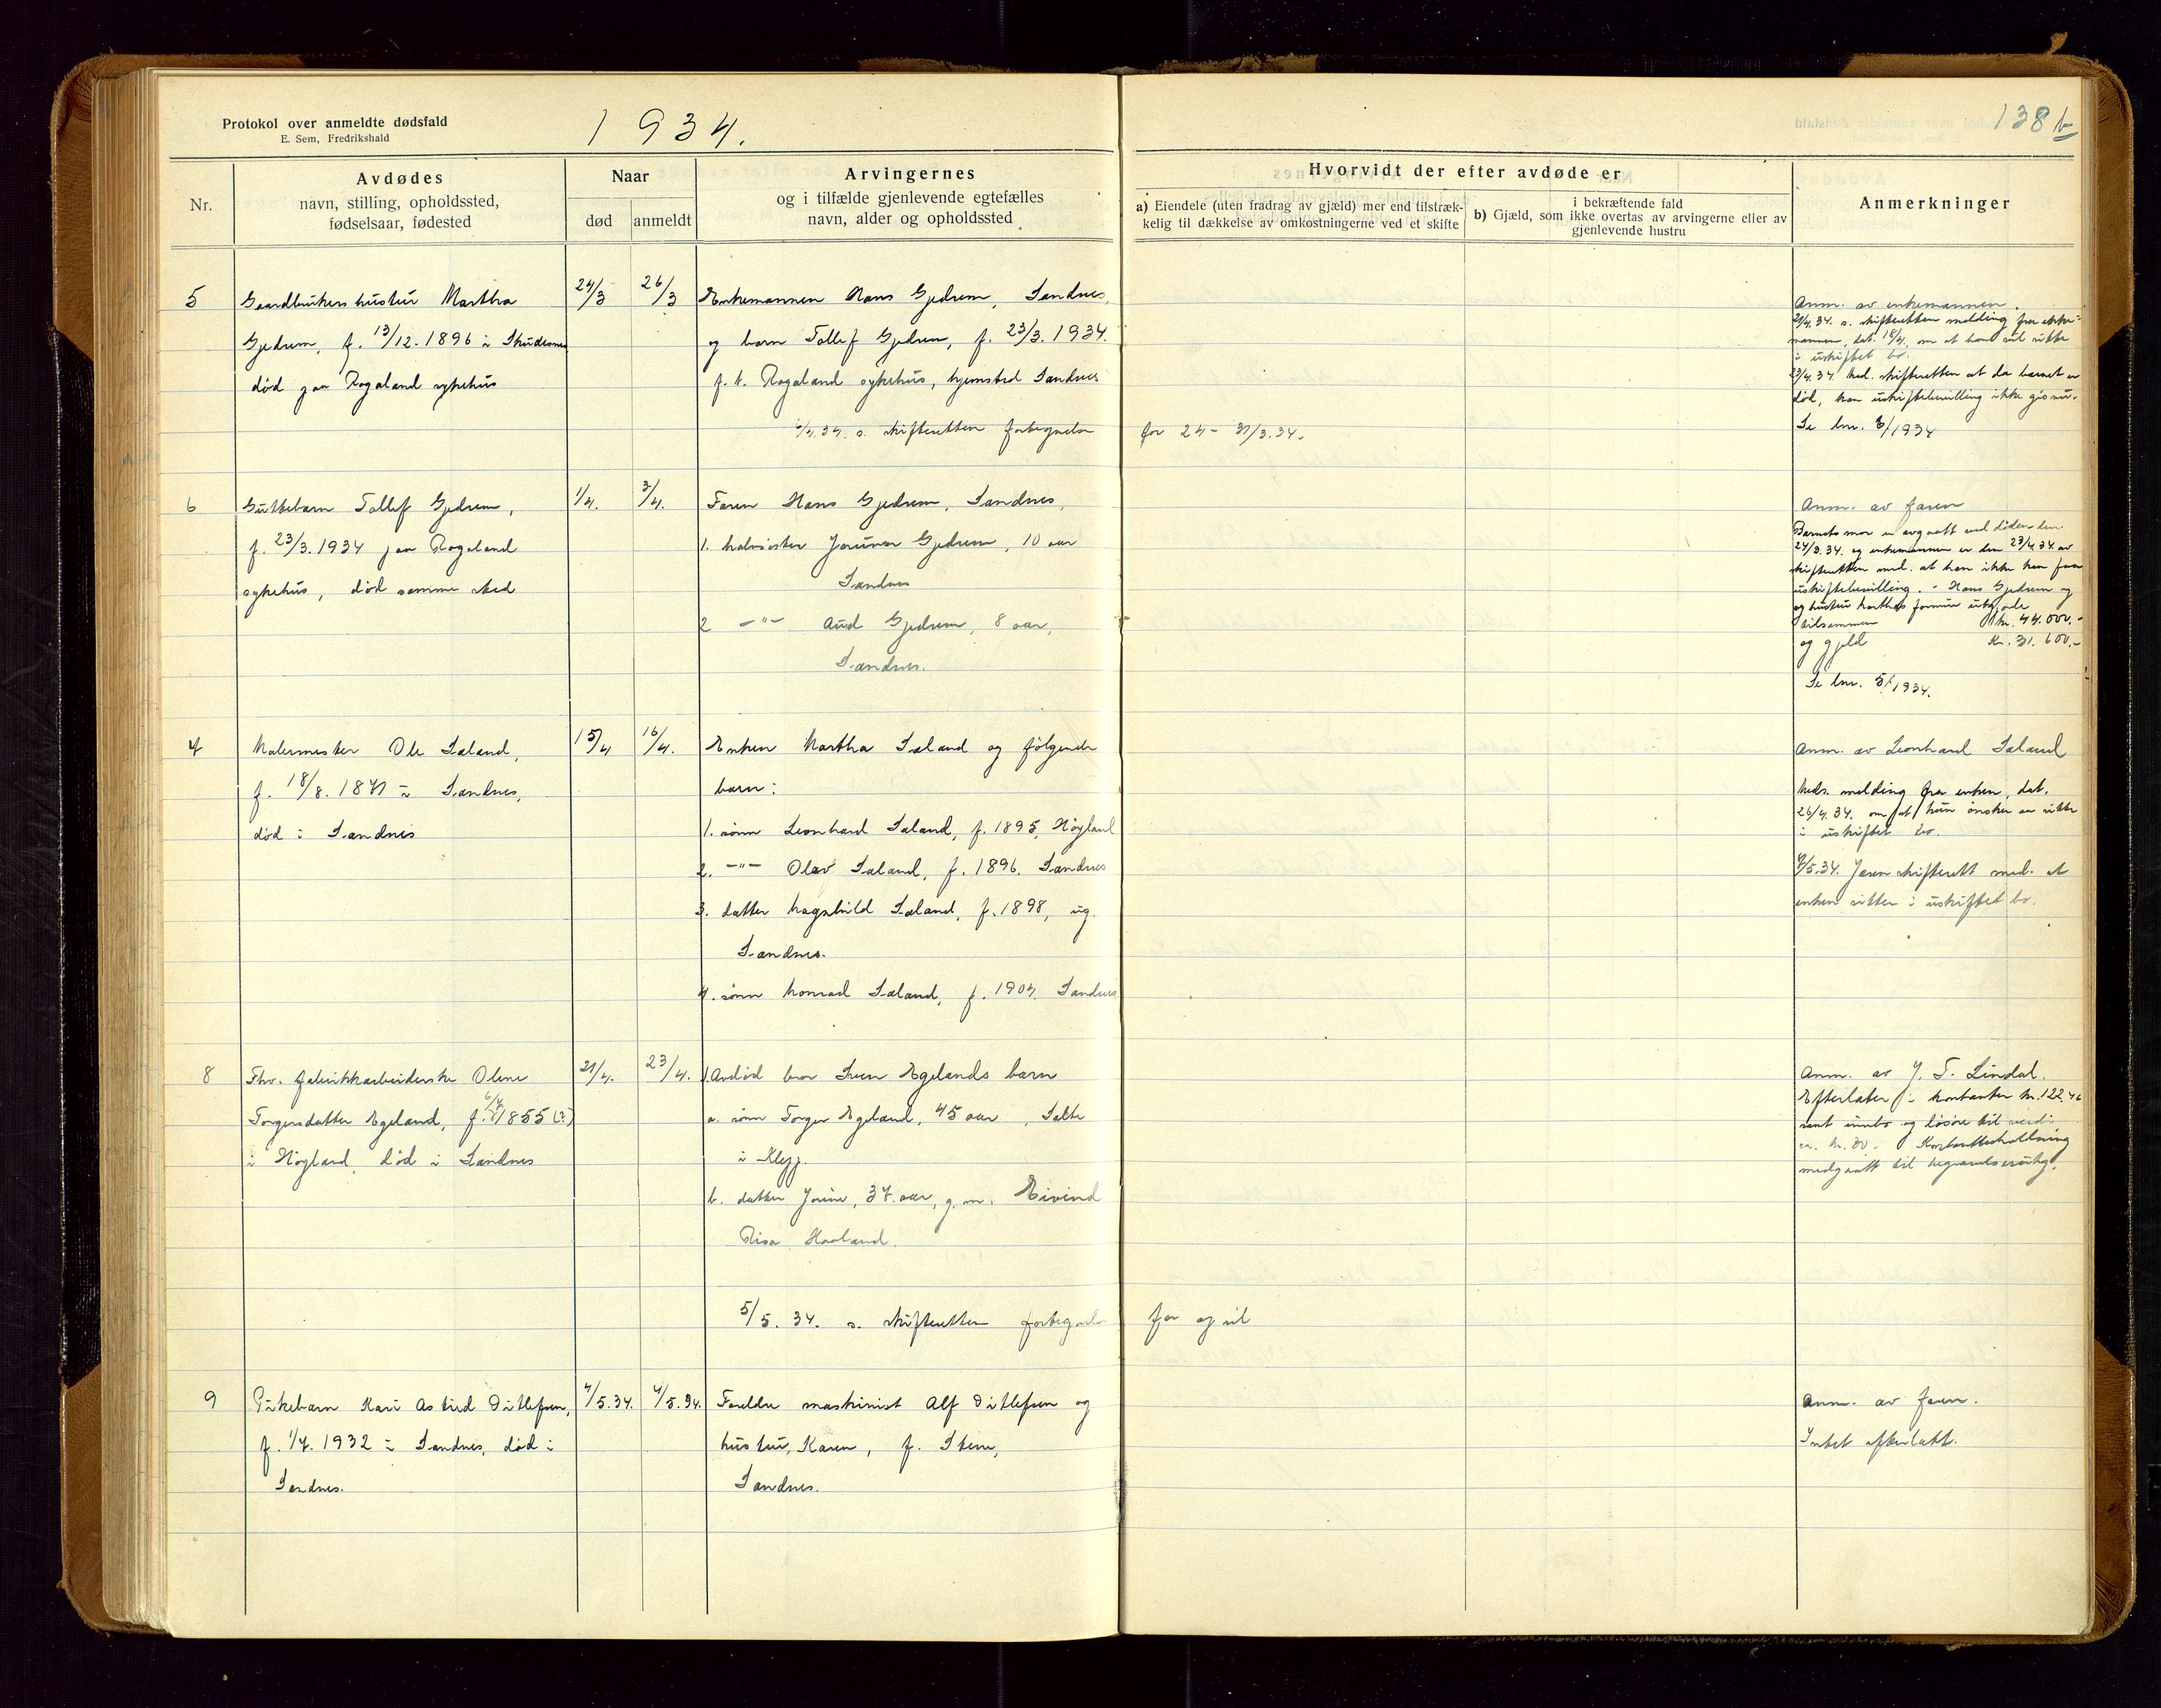 Protokol over anmeldte dødsfald
E. Sem, Fredrikshald
1934.
138 b
Nr.
Avdødes
navn, stilling, opholdssted,
fødselsaar, fødested
Naar
død
anmeldt
Arvingernes
og i tilfælde gjenlevende egtefælles
navn, alder og opholdssted
Hvorvidt der efter avdøde er
a) Eiendele (uten fradrag av gjæld) mer end tilstræk-
kelig til dækkelse av omkostningerne ved et skifte
i bekræftende fald
b) Gjæld, som ikke overtas av arvingerne eller av
gjenlevende hustru
Anmerkninger
5
Gaardbrukers hustru Martha
Gjedrem, f. 13/12. 1896 i Skudesnes
død paa Rogaland sykehus
24/3
26/3
Enkemannen Hans Gjedrem, Sandnes,
og barn Tollef Gjedrem, f. 23/3. 1934.
f. t. Rogaland sykehus, hjemsted Sandnes
s. skifteretten fortegnelse
for 24 - 31/3.34.
Anm. av enkemannen.
21/4.34. s. skifteretten melding fra enke-
mannen, dat. 18/4, om at han vil sitte
i uskiftet bo.
23/4.34. Med. skifteretten at da barnet er
død, kan uskiftebevilling ikke gis nu.
Se lnr. 6/1934
6
Guttebarn Tollef Gjedrem,
f. 23/3. 1934 paa Rogaland
sykehus, død samme sted
1/4.
3/4.
Faren Hans Gjedrem, Sandnes,
1. halvsøster Jorunn Gjedrem, 10 aar
Sandnes
2 -"- Aud Gjedrem, 8 aar,
Sandnes.
Anm. av faren
Barnets mor er avgaatt ved døden den
24/3.34. og enkemannen er den 23/4.34 av
skifteretten med. at han ikke kan faa
uskiftebevilling. - Hans Gjedrem og
og hustru Marthas formue utgjorde
tilsammen kr. 44.000.-
og gjeld kr. 31.600.-
Se lnr. 5/1934.
7
Malermester Ole Sæland,
f. 18/8. 1871 i Sandnes,
død i Sandnes
15/4
16/4.
Enken Martha Sæland og følgende
barn:
1. sønn Leonhard Sæland, f. 1895, Høyland
2. -"- Olav Sæland, f. 1896. Sandnes
3. datter Magnhild Sæland, f. 1898, ug.
Sandnes.
4. sønn Konrad Sæland, f. 1904. Sandnes
Anm. av Leonhard Sæland
Meds. melding fra enken, dat.
26/4.34. om at hun ønsker at sitte
i uskiftet bo.
9/5.34. Jæren skifterett med. at
enken sitter i uskiftet bo.
8
Fhv. fabrikkarbeiderske Olene
Torgersdatter Egeland, f. 1855 (?)
i Høyland, død i Sandnes
21/4.
23/4.
1. Avdød bror Sven Egelands barn
a. sønn Torger Egeland, 45 aar, Salte
i Klepp.
b. datter Jorine, 37 aar, g. m. Eivind
Risa Haaland.
5/5. 34. s. skifteretten fortegnelse
for april
Anm. av J. T. Lindal.
Efterlater i kontanter kr. 122,46
samt innbo og løsøre til verdi
ca. kr. 30.- Kontantbeholdning
medgaatt til begravelsesutg.
9
Pikebarn Kari Astrid Ditlefsen,
f. 1/7. 1932 i Sandnes, død i
Sandnes.
4/5.34.
4/5.34.
Foreldre maskinist Alf Ditlefsen og
hustru, Karen, f. Skem,
Sandnes.
Anm. av faren.
Intet efterlatt.